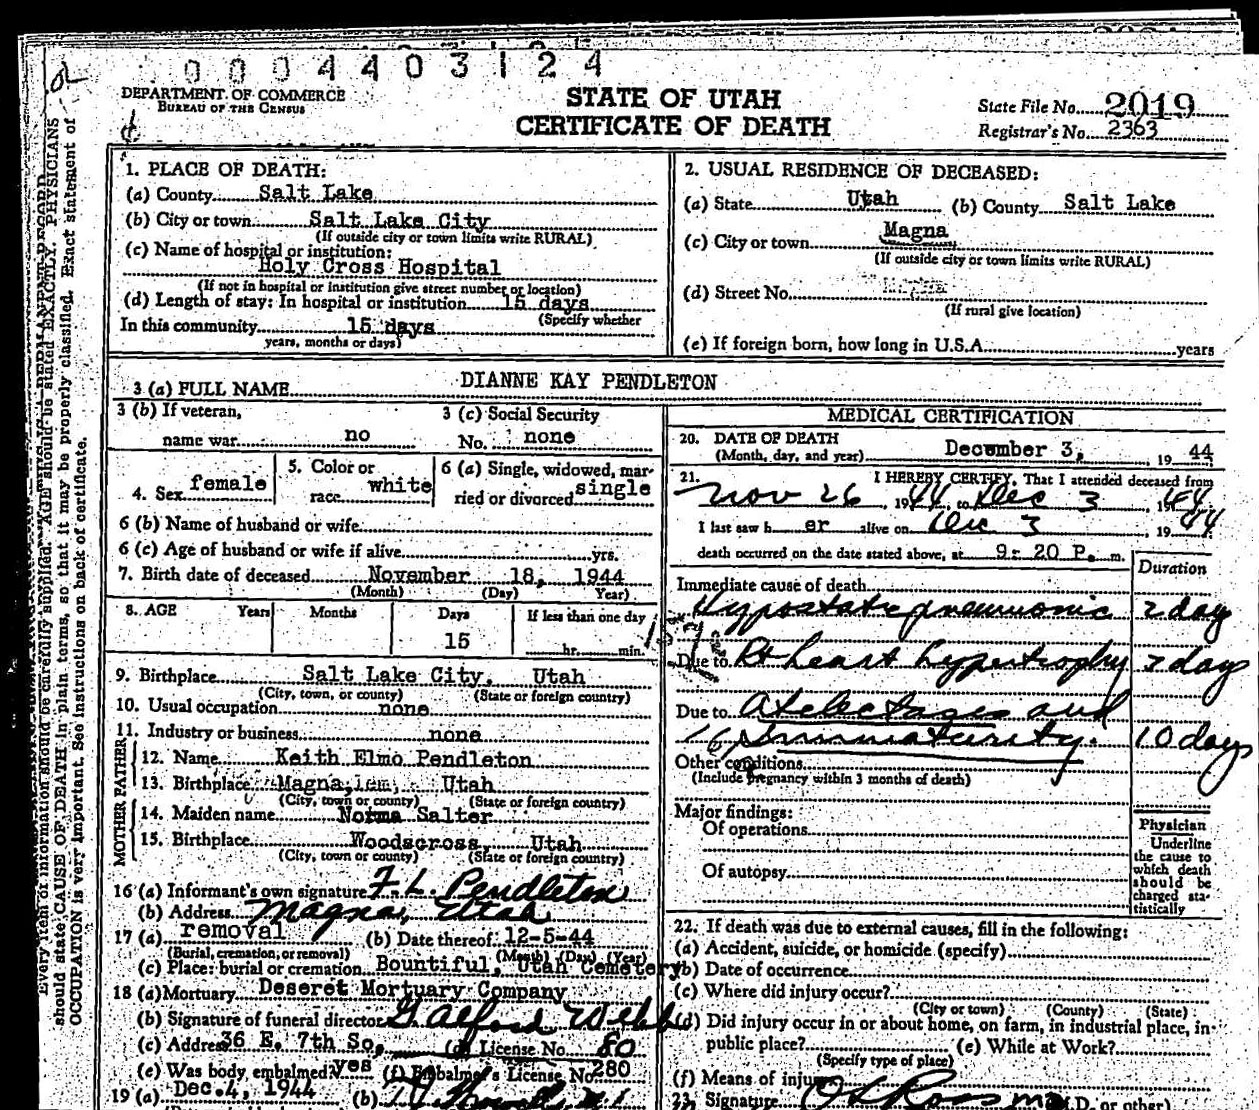 0 0 0 4 4 0 3 1 2 4
DEPARTMENT OF COMMERCE
BUREAU OF THE CENSUS
STATE OF UTAH
CERTIFICATE OF DEATH
State File No. 2019
Registrar's No. 2363
1. PLACE OF DEATH:
(a) County Salt Lake
(b) City or town Salt Lake City
(If outside city or town limits write RURAL)
(c) Name of hospital or institution:
Holy Cross Hospital
(If not in hospital or institution give street number or location)
(d) Length of stay: In hospital or institution 15 days
(Specify whether
In this community 15 days
years, months or days)
2. USUAL RESIDENCE OF DECEASED:
(a) State Utah (b) County Salt Lake
(c) City or town Magna
(If outside city or town limits write RURAL)
(d) Street No.
(If rural give location)
(e) If foreign born, how long in U.S.A. years
3 (a) FULL NAME DIANNE KAY PENDLETON
3 (b) If veteran,
name war no
3 (c) Social Security
No. none
4. Sex female
5. Color or
race white
6 (a) Single, widowed, mar-
ried or divorced single
6 (b) Name of husband or wife
6 (c) Age of husband or wife if alive yrs.
7. Birth date of deceased November 18, 1944
(Month) (Day) Year)
8. AGE Years Months Days If less than one day
15 hr. min.
9. Birthplace Salt Lake City, Utah
(City, town, or county) (State or foreign country)
10. Usual occupation none
11. Industry or business none
FATHER
12. Name Keith Elmo Pendleton
13. Birthplace Magna, Utah
(City, town or county) (State or foreign country)
MOTHER
14. Maiden name Norma Salter
15. Birthplace Woodscross, Utah
(City, town or county) (State or foreign country)
16 (a) Informant's own signature F. L. Pendleton
(b) Address Magna, Utah
17 (a) removal (b) Date thereof 12-5-44
(Burial, cremation, or removal) (Month) (Day) (Year)
(c) Place: burial or cremation Bountiful, Utah Cemetery
18 (a) Mortuary Deseret Mortuary Company
(b) Signature of funeral director
(c) Address 36 E. 7th So, (d) License No. 80
(e) Was body embalmed? yes (f) Embalmer's License No. 280
19 (a) Dec. 4, 1944 (b)
MEDICAL CERTIFICATION
20. DATE OF DEATH
(Month, day, and year) December 3, 19 44
21. I HEREBY CERTIFY, That I attended deceased from
Nov 26, 1944, to Dec 3, 1944
I last saw h er alive on Dec 3 19 44
death occurred on the date stated above, at 9: 20 P. m.
Duration
Immediate cause of death
Hypostatic pneumonia 2 day
Due to Rt heart hypertrophy 7 days
Due to Atelectases and
Immaturity. 10 days
Other conditions
(Include pregnancy within 3 months of death)
Major findings:
Of operations
Of autopsy
Physician
Underline
the cause to
which death
should be
charged sta-
tistically
22. If death was due to external causes, fill in the following:
(a) Accident, suicide, or homicide (specify)
(b) Date of occurrence
(c) Where did injury occur?
(City or town) (County) (State)
(d) Did injury occur in or about home, on farm, in industrial place, in
public place? (e) While at Work?
(Specify type of place)
(f) Means of injury
23. Signature (M.D. or other)
Every item of information should be carefully supplied. AGE should be stated EXACTLY. PHYSICIANS
should state CAUSE OF DEATH in plain terms, so that it may be properly classified. Exact statement of
OCCUPATION is very important. See instructions on back of certificate.